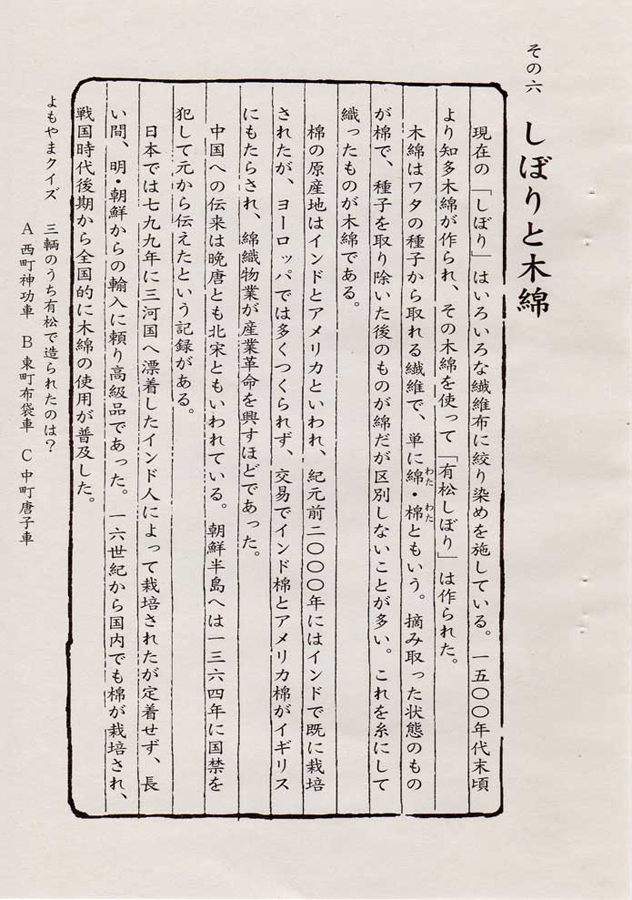 その六
しぼりと木綿
現在の「しぼり」はいろいろな繊維布に絞り染めを施している。一五〇〇年代末頃
より知多木綿が作られ、その木綿を使って「有松しぼり」は作られた。
木綿はワタの種子から取れる繊維で、単に綿・棉ともいう。摘み取った状態のもの
わた わた
が棉で、種子を取り除いた後のものが綿だが区別しないことが多い。これを糸にして
織ったものが木綿である。
棉の原産地はインドとアメリカといわれ、紀元前二〇〇〇年にはインドで既に栽培
されたが、ヨーロッパでは多くつくられず、交易でインド棉とアメリカ棉がイギリス
にもたらされ、綿織物業が産業革命を興すほどであった。
中国への伝来は晩唐とも北宋ともいわれている。朝鮮半島へは一三六四年に国禁を
犯して元から伝えたという記録がある。
日本では七九九年に三河国へ漂着したインド人によって栽培されたが定着せず、長
い間、明・朝鮮からの輸入に頼り高級品であった。一六世紀から国内でも棉が栽培され、
戦国時代後期から全国的に木綿の使用が普及した。
よもやまクイズ 三輌のうち有松で造られたのは?
A 西町神功車 B 東町布袋車 C 中町唐子車